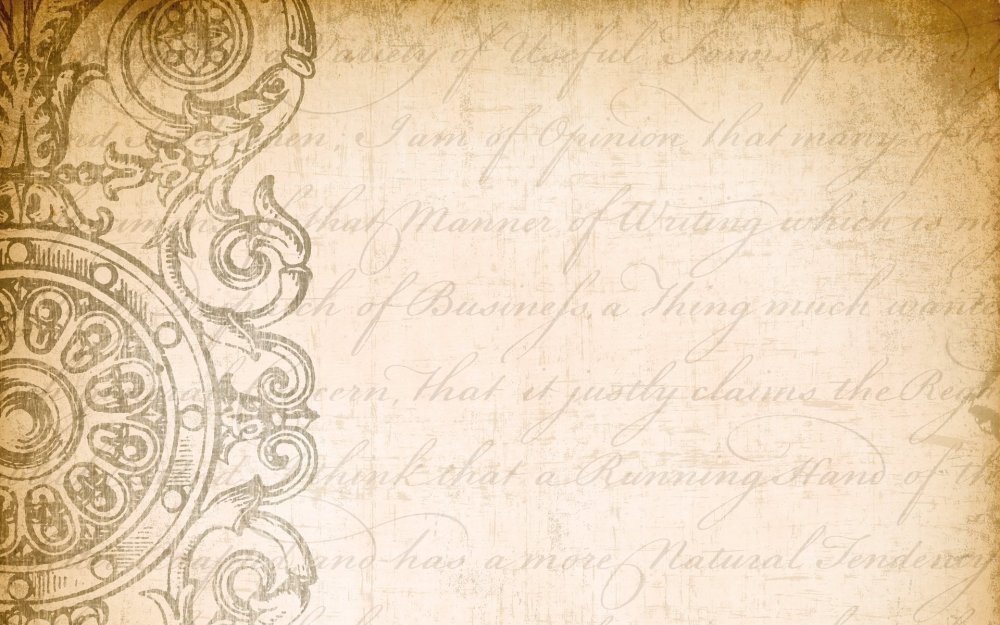 Variety of Useful Forms practised
nd men; I am of Opinion that many of
that Manner of Writing which is
ch of Busineſs a Thing much want
cern, that it justly claims the Reg
think that a Running Hand of th
and has a more Natural Tendency